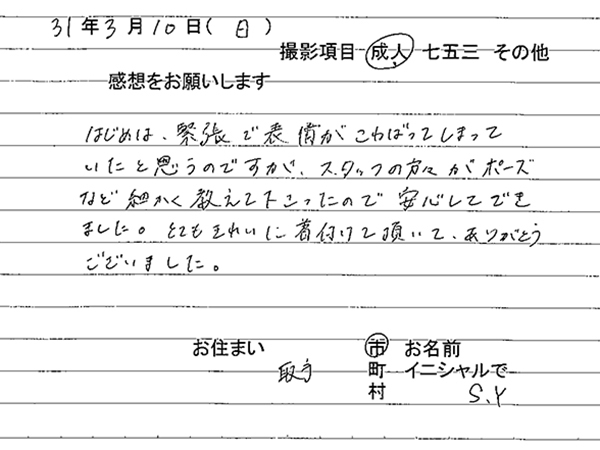 31年3月10日(日)
撮影項目 成人 七五三 その他
感想をお願いします
はじめは、緊張で表情がこわばってしまって
いたと思うのですが、スタッフの方々がポーズ
など細かく教えて下さったので安心してでき
ました。とてもきれいに着付けて頂いて、ありがとう
ございました。
お住まい 取手 市 町 村
お名前 イニシャルで S.Y